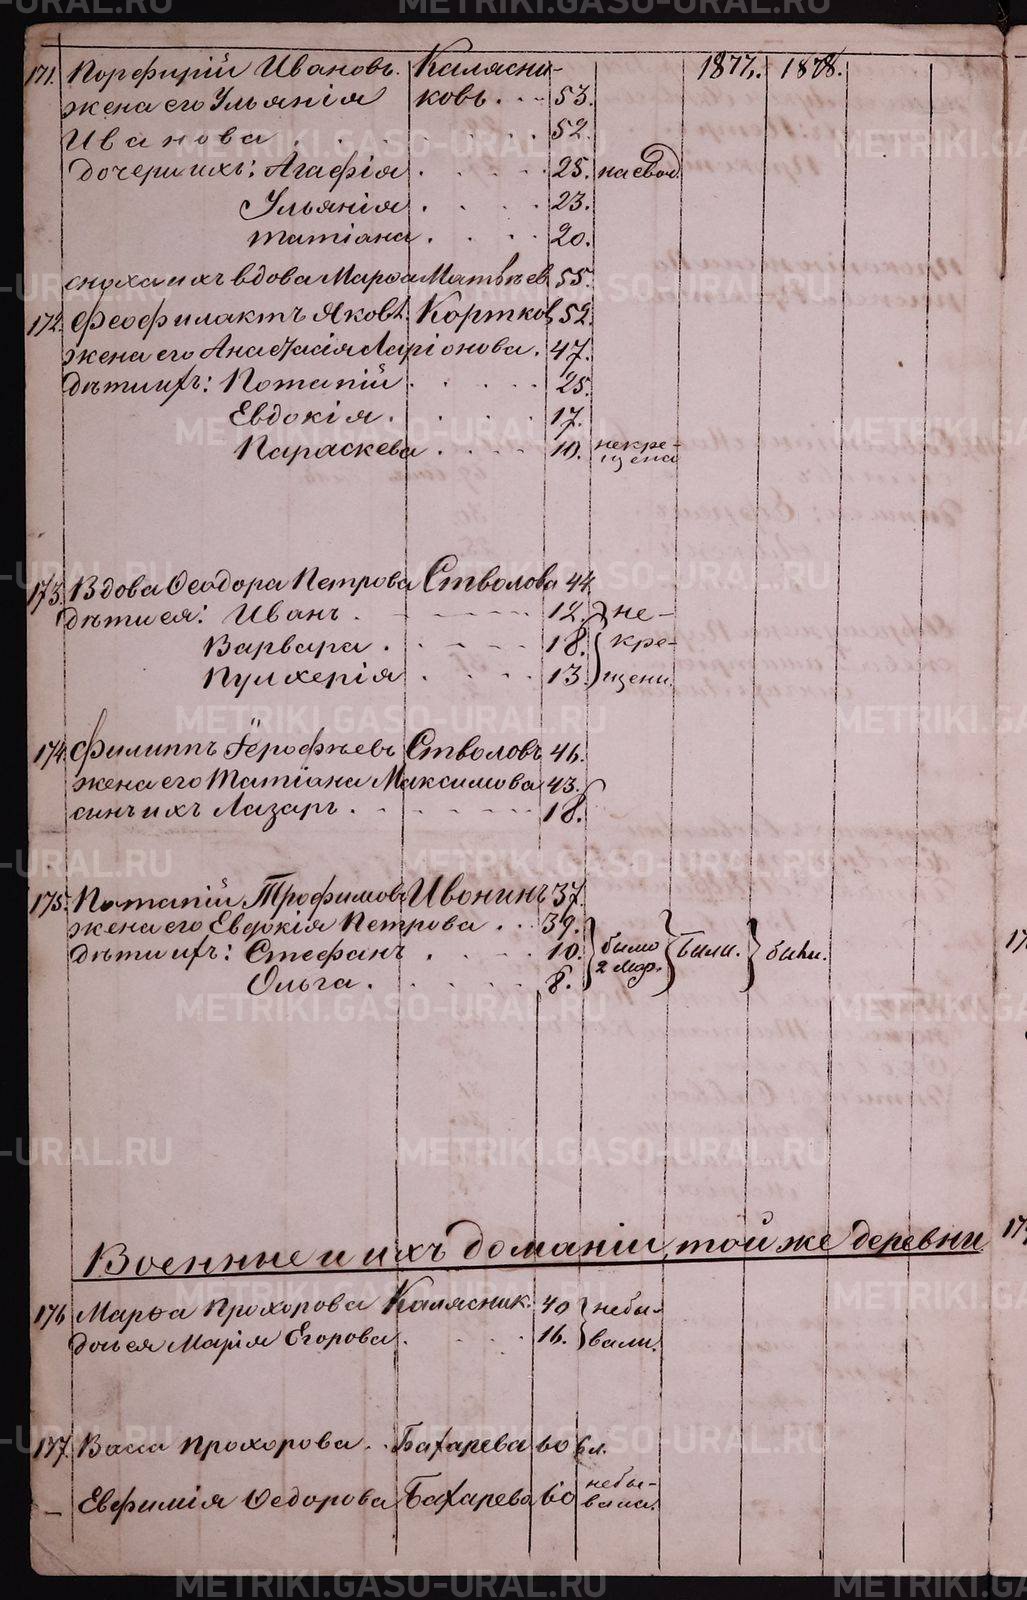 1877. 1878.
171. Порфирій Ивановъ. Калясни-
жена его Ульянія ковъ. 53.
Иванова 52.
дочери ихъ: Агафія 25. на свод.
Ульянія 23.
Татіана 20.
сноха ихъ вдова Марѳа Матвѣев 55.
172. Феофилактъ Яковл. Кортков 52.
жена его Анастасія Ларіонова. 47.
дѣти их: Потапій 25.
Евдокія. 17.
Параскева 10. некре-
щена
173. Вдова Ѳеодора Петрова Стволова 44.
дѣти ея: Иванъ. 12. не-
Варвара. 18. кре-
Пулхерія 13. щени.
174. Филиппъ Ерофѣевъ Стволовъ 46.
жена его Татіана Максимова 43.
синъ ихъ Лазаръ. 18.
175. Потапій Трофимовъ Ивонинъ 37.
жена его Евдокія Петрова. 39.
дѣти их: Стефанъ. 10. было были. были.
Ольга. 8. 2 Мар.
Военные и ихъ доманіи, той же деревни
176 Марѳа Прохорова Калясник. 40 небы-
дочь ея Марія Егорова. 16. вали.
177. Васса Прохорова. Бахарева 60 бл.
– Евфимія Ѳедорова Бахарева 60 небы-
вала.
METRIKI.GASO-URAL.RU